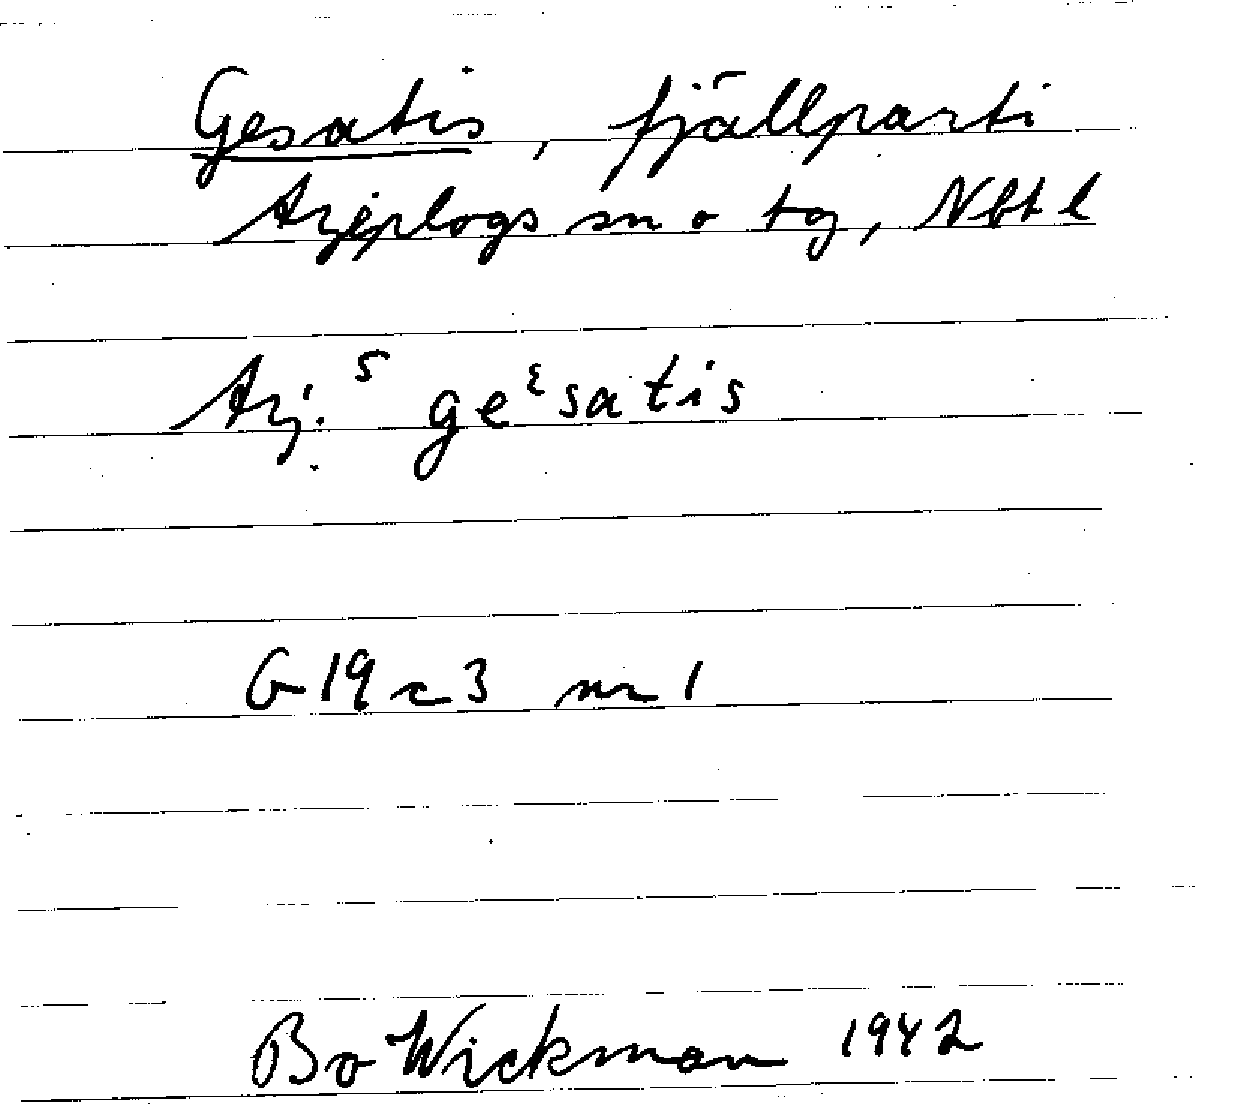 Gesatis, fjällparti
Arjeplogs sn o tg, Nbt l
Arj. S geᵋsatis
G 19 c 3 nr 1
Bo Wickman 1942